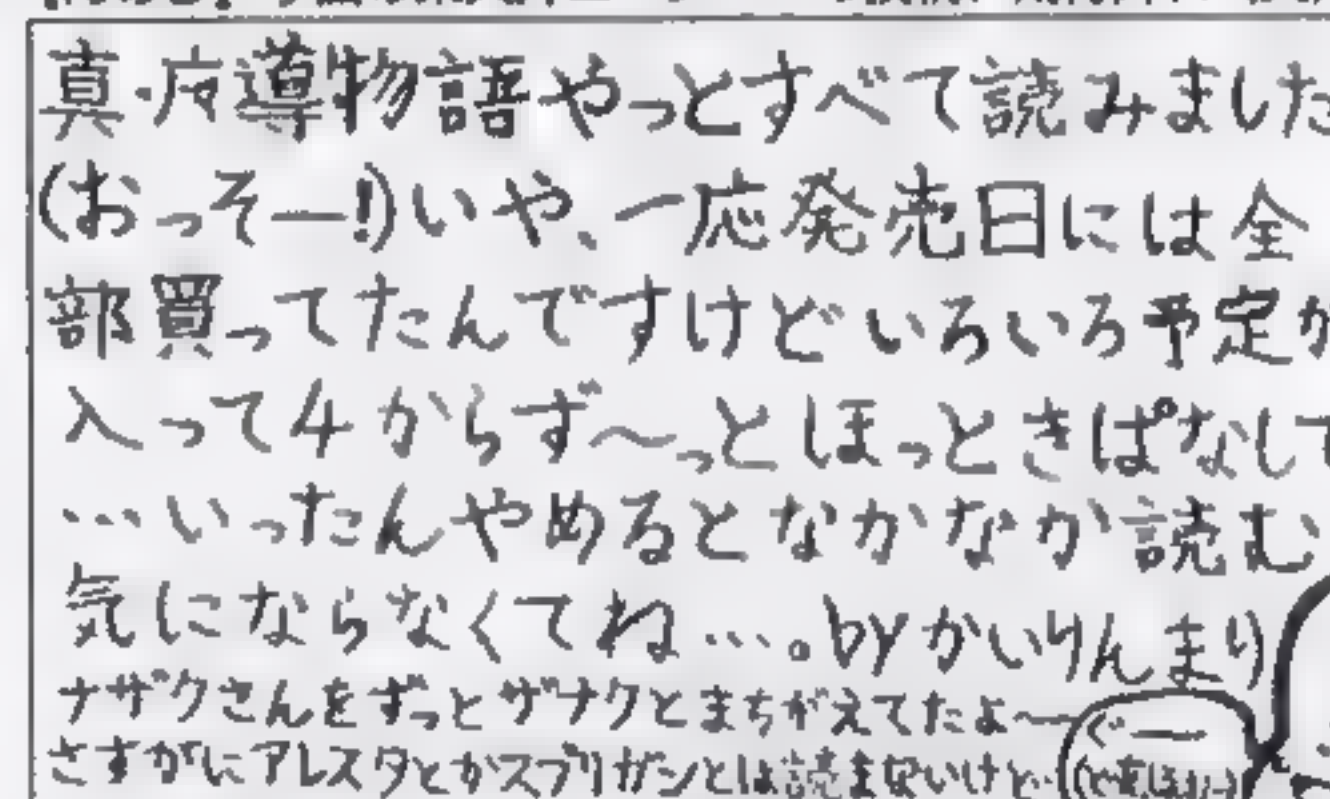 真・广マ導物語やっとすべて読みました
(おっそー!)いや、一応発売日には全
部買ってたんですけどいろいろ予定が
入って4からず〜っとほっときぱなして
…いったんやめるとなかなか読む
気にならなくてね…。byかいりんまり
ナザクさんをずっとザナクとまちがえてたよ〜
さすがにアレスタとかスプリガンとは読まないけど…
ぐー